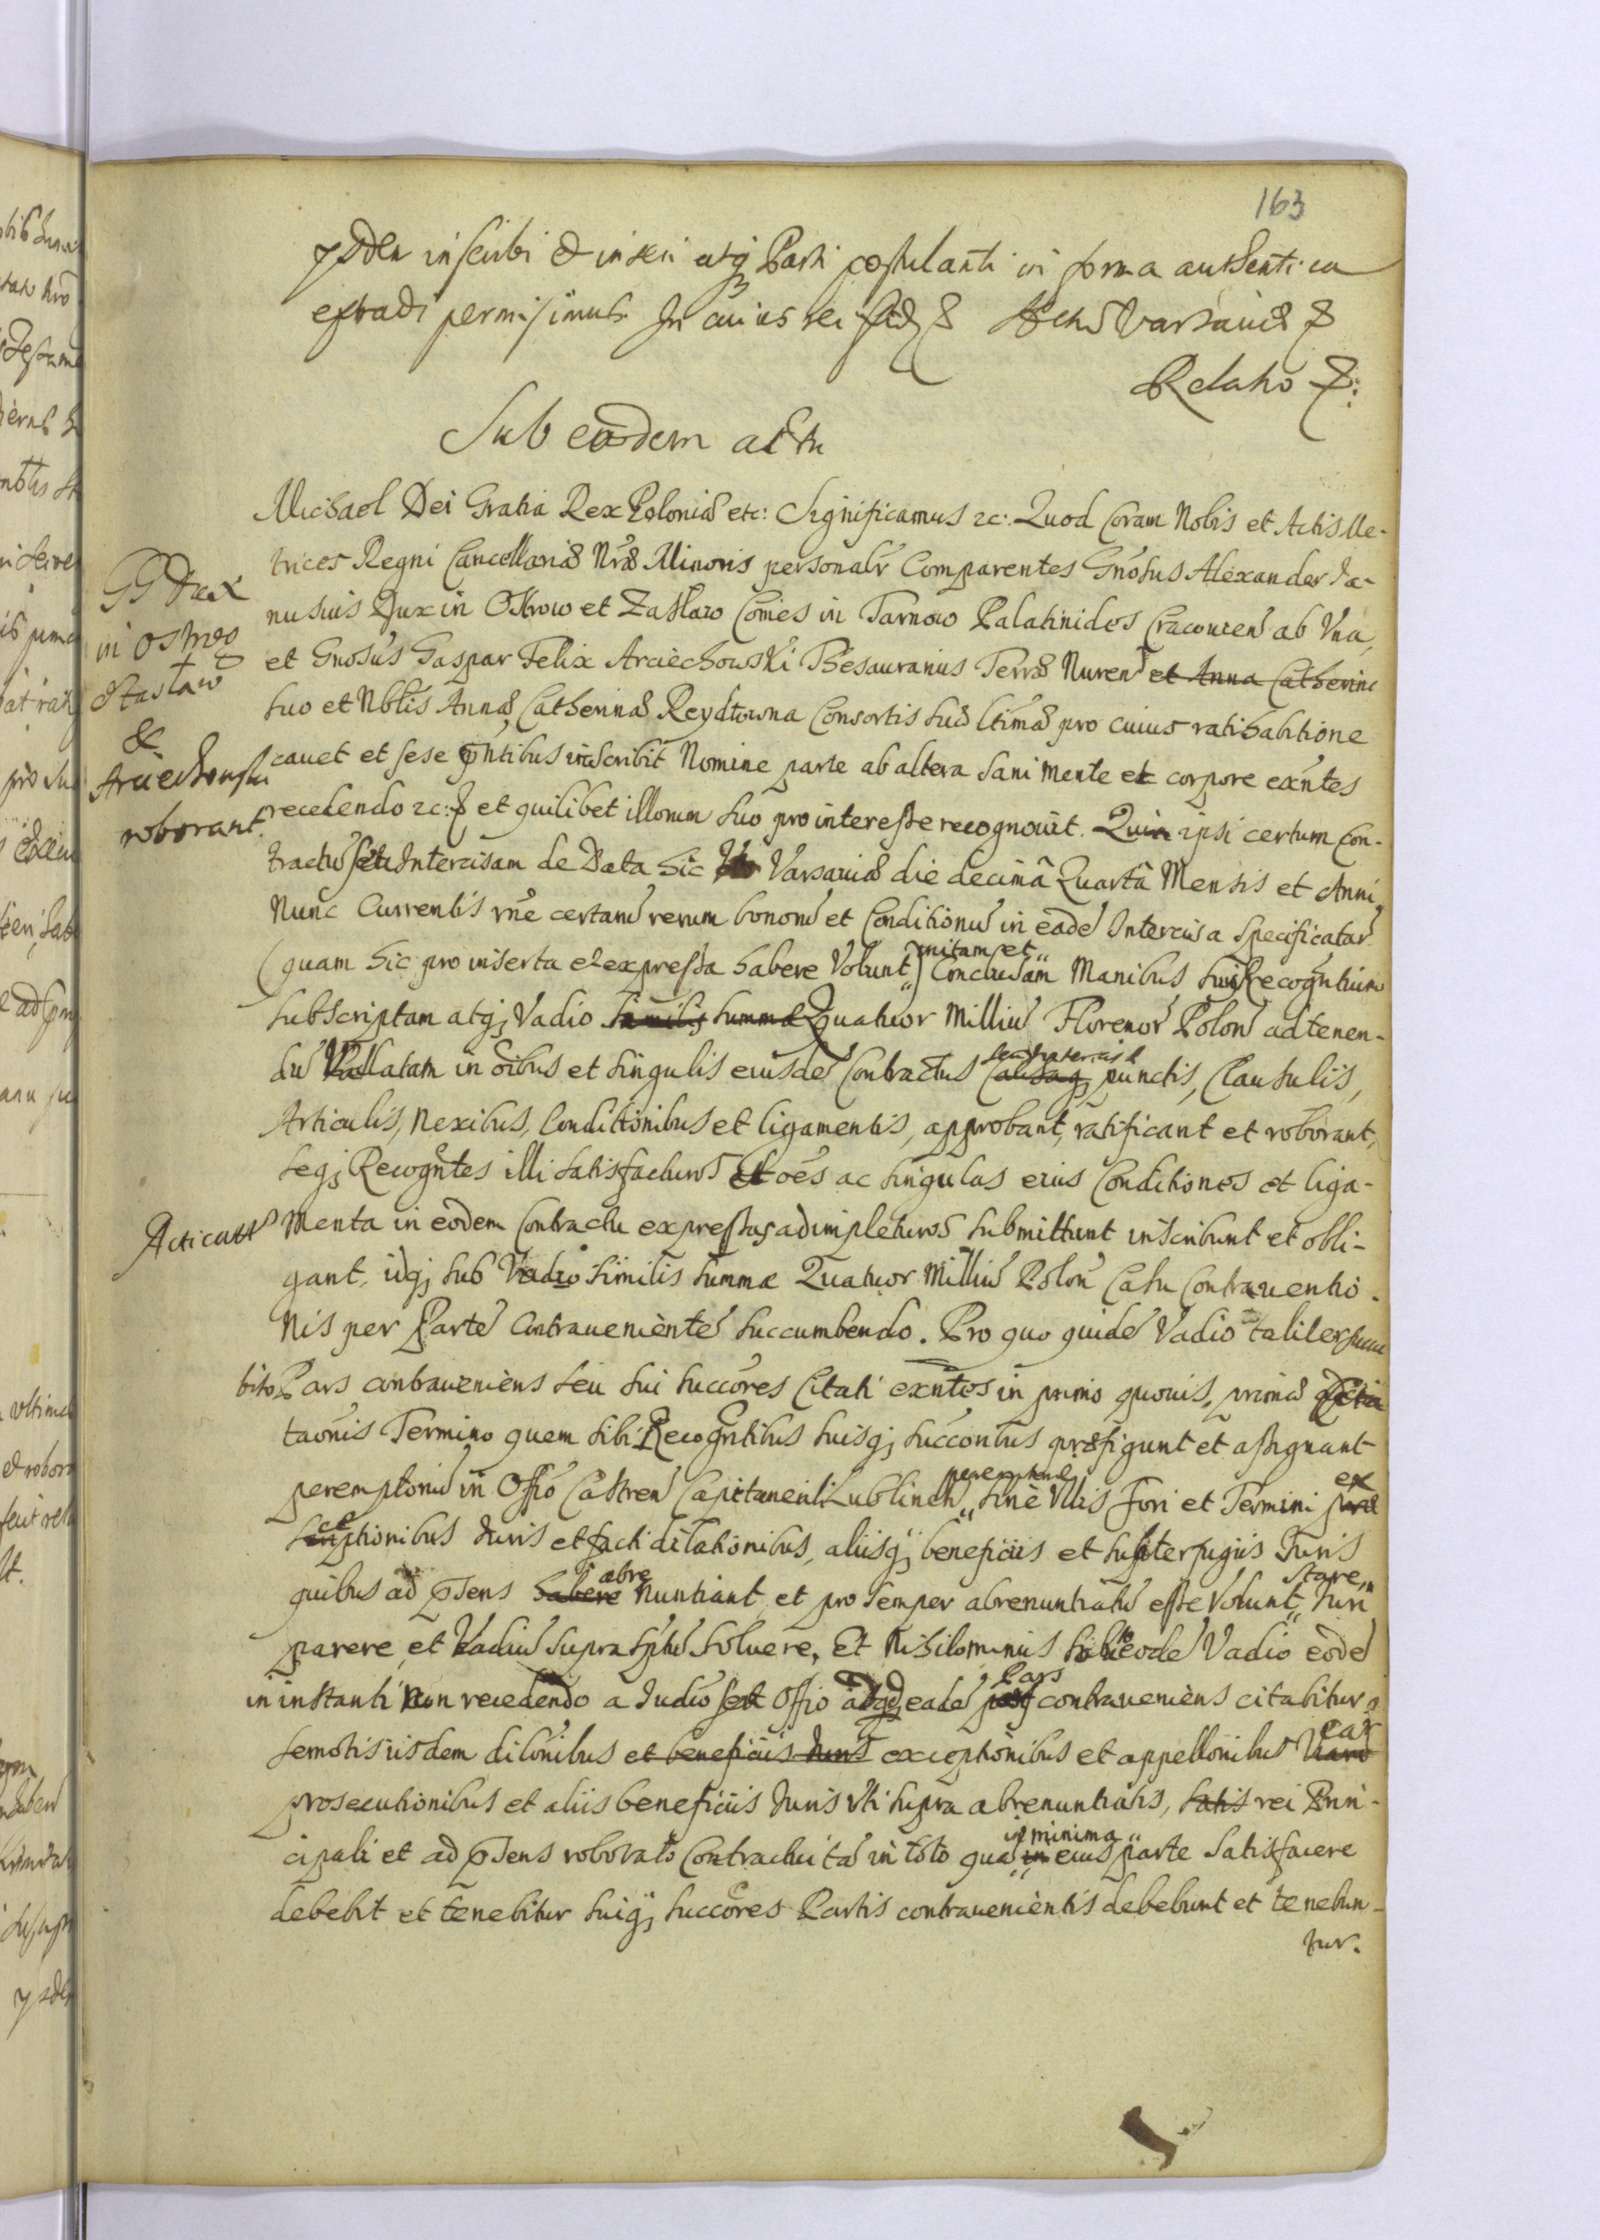 163
inscribi et inseri atq Parti postulanti in forma authentica
extradi permisimus In cuius rei fid & Actu Varsaviæ &
Relatio &:
Sub eodem actu
Michael Dei Gratia Rex Poloniæ etc: Significamus 2c: Quod Coram Nobis et Actis Me-
trices Regni Cancellariæ Nræ Minoris personalr Comparentes Gnosus Alexander Ja-
nusius Dux in Ostrow et Zaslaw Comes in Tarnow Palatinides Cracovien ab Vna,
et Gnosus Gaspar Felix Arciechowski Thesaurarius Terræ Nuren et Anna Catherinæ
suo et Nblis Annæ Catherinæ Reydtowna Consortis suæ ltimæ pro cuius ratihabitione
cauet et sese pntibus inscribit Nomine parte ab altera sani mente et corpore exntes
recedendo 2c: & et quilibet illorum suo pro interesse recognouit. Quia ipsi certum Con-
tractu seu Intercisam de Data hic Varsauiæ die decimâ Quartâ Mensis et Anni
Nunc Currentis rne certarũ rerum bonorũ et Conditionũ in eadẽ Intercisa specificatar
(quam hic pro inserta et expressa habere Volunt) initam et Conclusam Manibus suis Recogntium
subscriptam atq; Vadio similis summæ Quatuor Milliũ Florenor Polon ad tenen-
du Vallatam in oibus et singulis eiusdẽ Contractus seu Intercisæ punctis, Clausulis,
Articulis, Nexibus, Conditionibus et ligamentis, approbant, ratificant et roborant,
seq; Recogntes illi satisfacturos Et oes ac singulas eius Conditiones et liga-
menta in eodem Contractu expressas adimpleturos submittunt inscribunt et obli-
gant, idq; sub Vadio similis summæ Quatuor Milliũ Polon Casu Contrauentio-
nis per Partẽ Contrauenientẽ succumbendo. Pro quo quidẽ Vadio taliter succu
bito Pars contraueniens seu sui succores Citati exntes in primo quouis, primæ
taonis Termino quem sibi Recogntibus suisq; succoribus præfigunt et assignant
peremptoriũ in Offo Castren Capitaneali Lublinen peremptoriẽ sine Vllis Fori et Termini ex
ceptionibus Iuris et facti dilationibus, aliisq; beneficiis et subterfugiis Iuris
quibus ad psens habere abre nuntiant et pro semper abrenuntiatũ esse Volunt, stare, Iuri
parere, et Vadiũ supra sptũ soluere. Et Nihilominus sub eodẽ Vadio eodẽ
in instanti Non recedendo a Iudio seu Offio eadẽ Pars contraueniens citabitur
semotis iisdem dilonibus et beneficiis Iuris exceptionibus et appellonibus ear
prosecutionibus et aliis beneficiis Iuris Vti supra abrenuntiatis, satis rei Prin-
cipali et ad psens roborato Contractui tã in toto quã in minima eius parte satisfacere
debebit et tenebitur suiq; succores Partis contrauenientis debebunt et tenebun-
tur.
GG Dux
in Ostrog
et Zaslaw
&
Arciechowski
roborant.